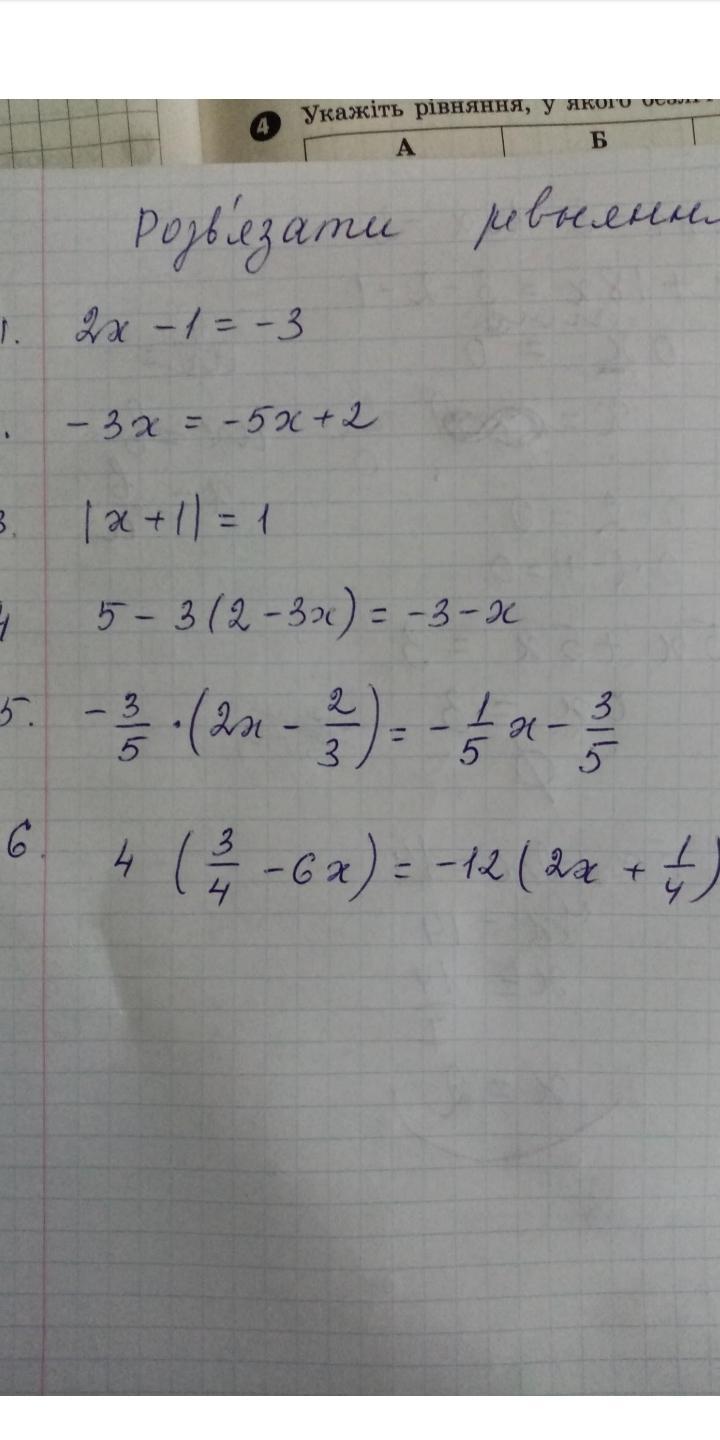 4 Укажіть рівняння, у якого
А Б
Розв'язати
1. 2x - 1 = -3
. - 3x = -5x + 2
3. |x + 1| = 1
4 5 - 3(2 - 3x) = -3 - x
5. - 3/5 · (2x - 2/3) = - 1/5 x - 3/5
6. 4 (3/4 - 6x) = -12(2x + 1/4)